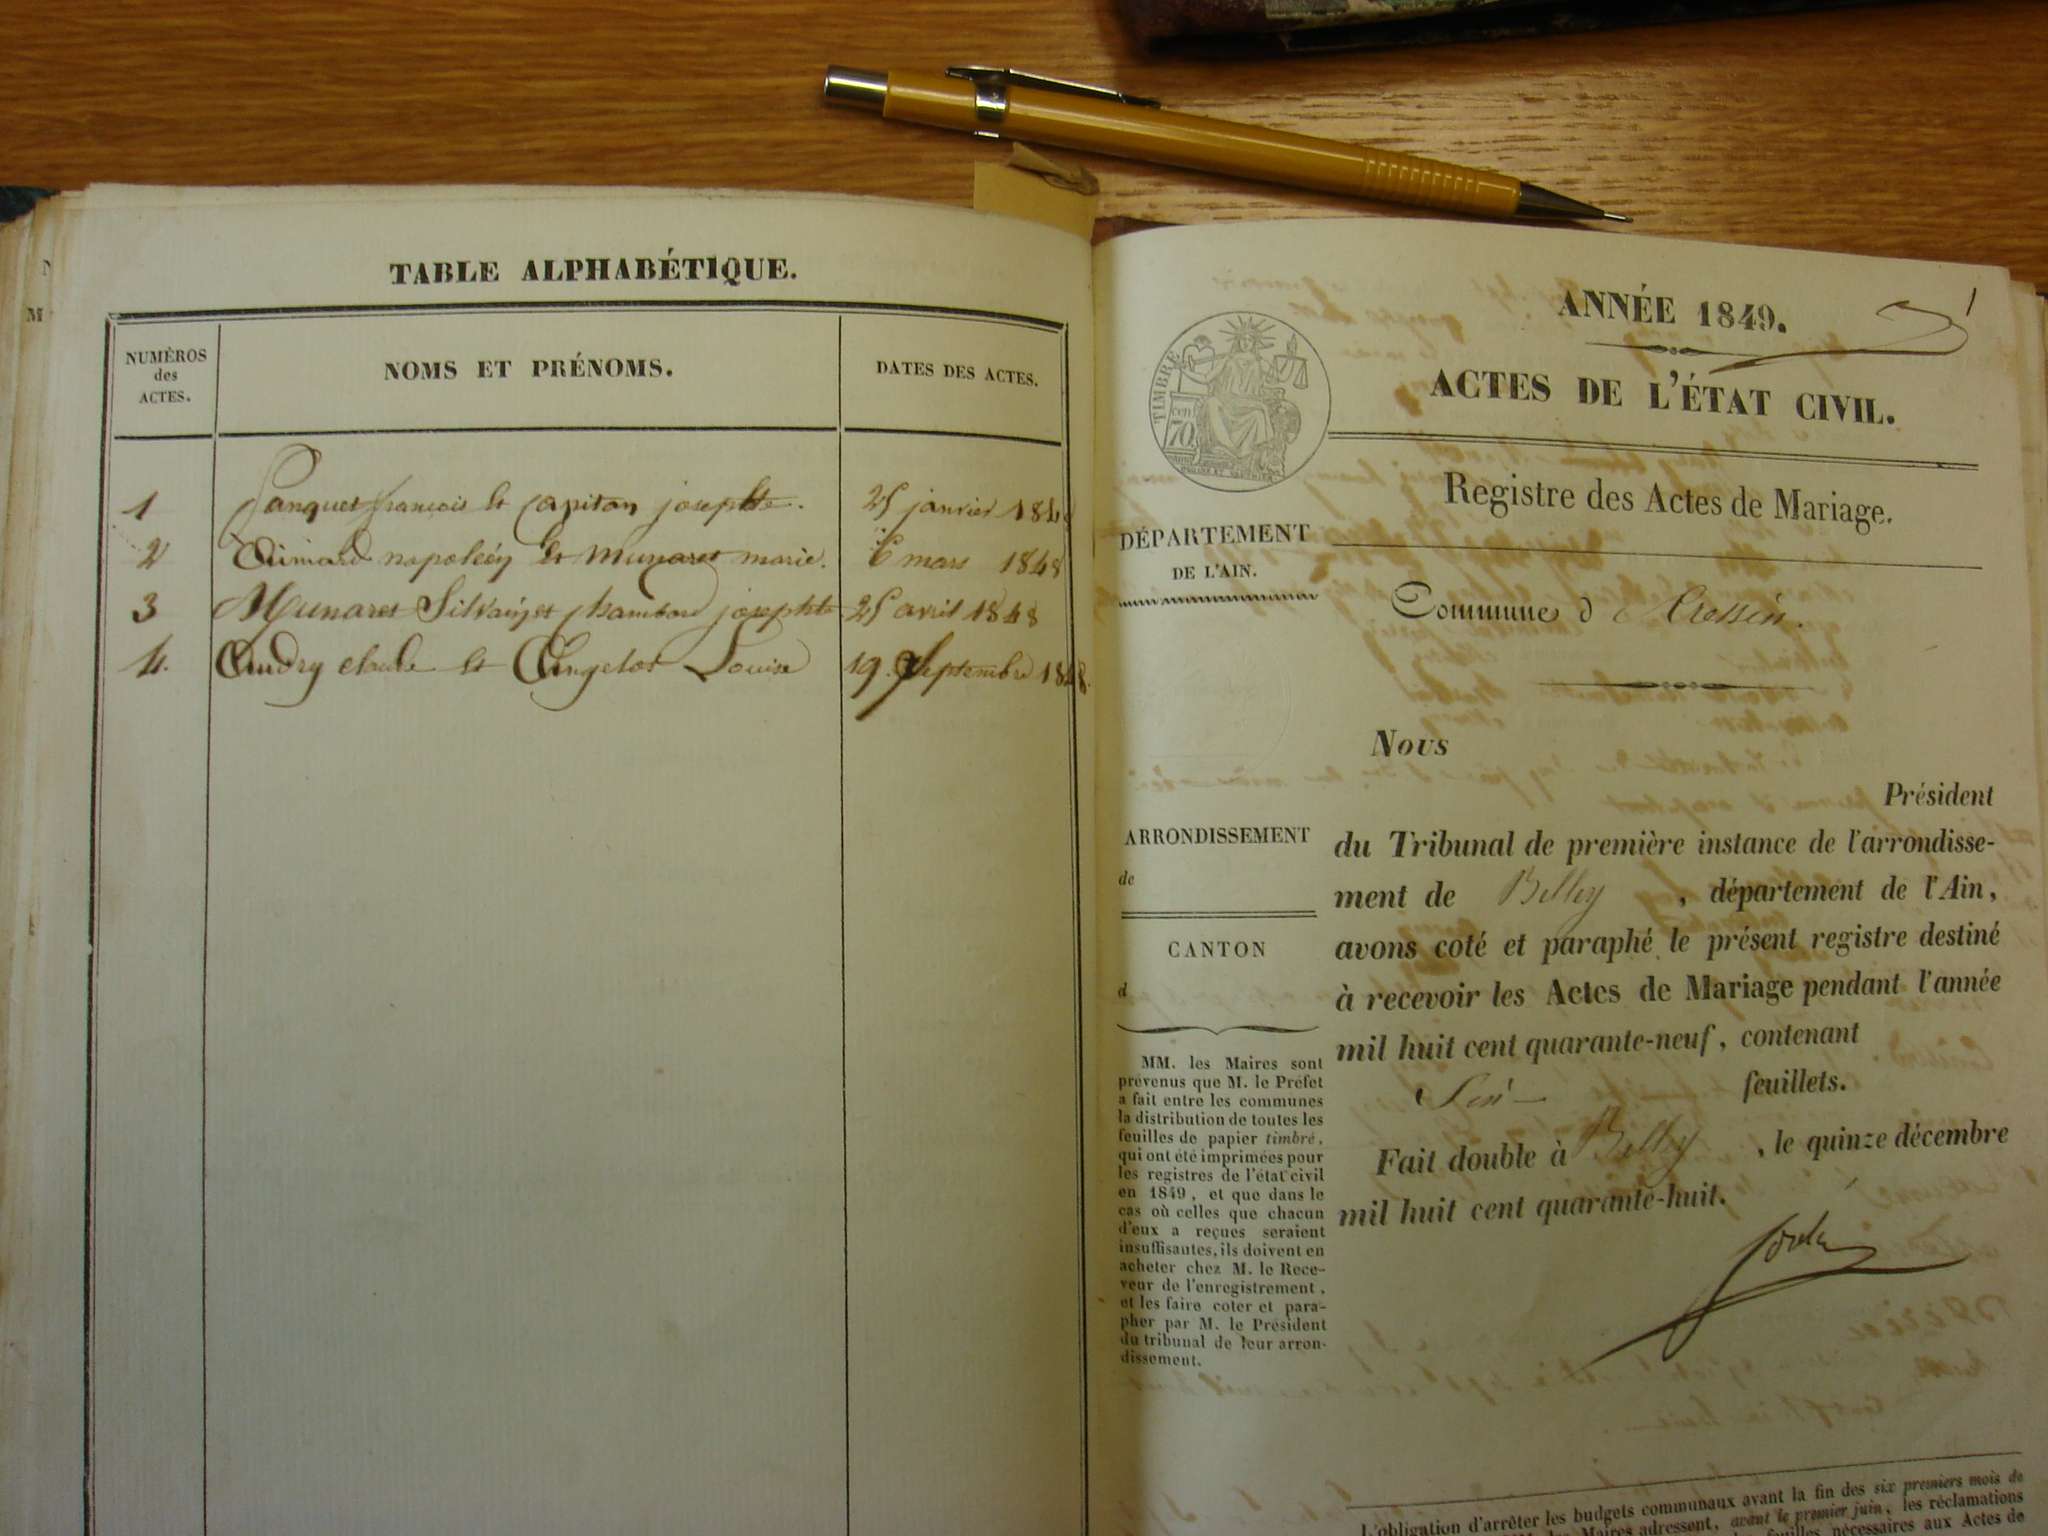 TABLE ALPHABÉTIQUE.
NUMÈROS
des
ACTES.
NOMS ET PRÉNOMS.
DATES DES ACTES.
1 Panquet françois et Capitan josephte. 25 janvier 1848
2 napoléon et Munaret marie. 6 mars 1848
3 Munaret Silvain et josephte 25 avril 1848
4. Claude et Louise 19 Septembre 1848.
1
ANNÉE 1849.
ACTES DE L'ÉTAT CIVIL.
TIMBRE
70
cen
Registre des Actes de Mariage.
DÉPARTEMENT
DE L'AIN.
Commune d Cressin.
Nous
Président
ARRONDISSEMENT
de
CANTON
d
du Tribunal de première instance de l'arrondisse-
ment de Belley, département de l'Ain,
avons coté et paraphé le présent registre destiné
à recevoir les Actes de Mariage pendant l'année
mil huit cent quarante-neuf, contenant
feuillets.
Fait double à Belley, le quinze décembre
mil huit cent quarante-huit.
MM. les Maires sont
prévenus que M. le Préfet
a fait entre les communes
la distribution de toutes les
feuilles de papier timbré,
qui ont été imprimées pour
les registres de l'état civil
en 1849, et que dans le
cas où celles que chacun
d'eux a reçues seraient
insuffisantes, ils doivent en
acheter chez M. le Rece-
veur de l'enregistrement,
et les faire coter et para-
pher par M. le Président
du tribunal de leur arron-
dissement.
L'obligation d'arrêter les budgets communaux avant la fin des six premiers mois de
les Maires adressent, avant le premier juin, les réclamations
feuilles nécessaires aux Actes de